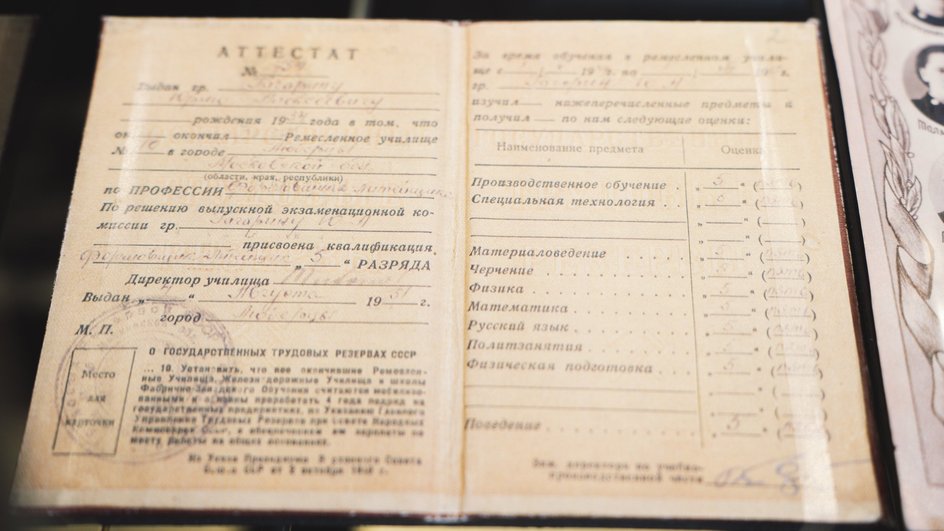 АТТЕСТАТ
№
Выдан гр. Гагарину
Юрию Алексеевичу
рождения 1934 года в том, что
он окончил Ремесленное училище
№ 10 в городе Люберцы
Московской обл.
(области, края, республики)
по ПРОФЕССИИ формовщик литейщик
По решению выпускной экзаменационной ко-
миссии гр. Гагарину Ю. А.
присвоена квалификация
формовщик литейщик „ 5 “ РАЗРЯДА
Директор училища
Выдан „ “ 1951 г.
город Люберцы
М. П.
Место
для
карточки
О ГОСУДАРСТВЕННЫХ ТРУДОВЫХ РЕЗЕРВАХ СССР
... 10. Установить, что все окончившие Ремеслен-
ные Училища, Железнодорожные Училища и школы
Фабрично-Заводского Обучения считаются мобилизо-
ванными и обязаны проработать 4 года подряд на
государственных предприятиях, по Указанию Главного
Управления Трудовых Резервов при Совете Народных
Комиссаров СССР, с обеспечением им зарплаты по
месту работы на общих основаниях.
Из Указа Президиума Верховного Совета
СССР от 2 октября 1940 г.
2
За время обучения в ремесленном учили-
ще с по г.
гр. Гагарин Ю. А.
изучил нижеперечисленные предметы и
получил по ним следующие оценки:
Наименование предмета Оценка
Производственное обучение . „ 5 “ (пять)
Специальная технология . . „ 5 “ (пять)
Материаловедение . . . . . „ 5 “ (пять)
Черчение . . . . . . „ 5 “ (пять)
Физика . . . . . . . „ 5 “ (пять)
Математика . . . . . . „ 5 “ (пять)
Русский язык . . . . . „ 5 “ (пять)
Политзанятия . . . . . „ 5 “ (пять)
Физическая подготовка . . . „ 5 “ (пять)
Поведение . . . . . . „ 5 “ (пять)
Зам. директора по учебно-
производственной части